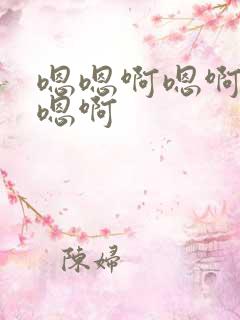 嗯嗯啊嗯啊
嗯啊
陳婦